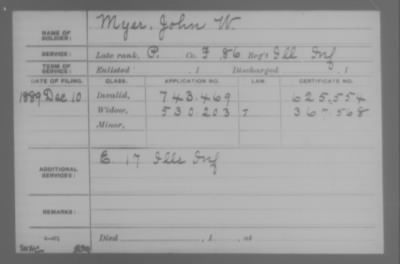 NAME OF SOLDIER: Myer, John W.
SERVICE: Late rank, P. Co. F, 86 Reg't Ill Inf
TERM OF SERVICE: Enlisted , 1 Discharged , 1
DATE OF FILING. CLASS. APPLICATION NO. LAW. CERTIFICATE NO.
1889 Dec 10 Invalid, 743.469 625.554
Widow, 530203 367.568
Minor,
ADDITIONAL SERVICES: E. 17 Ills Inf
REMARKS:
Died , 1 , at